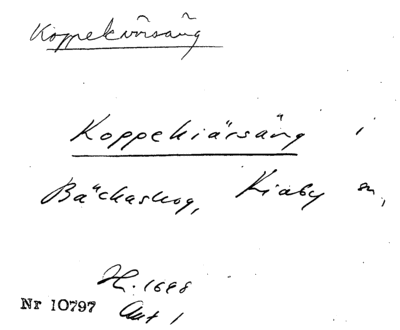 Koppekörsäng
Koppekiärsäng i
Bäckaskog, Kiaby sn,
H. 1698
Nr 10797 Akt 1